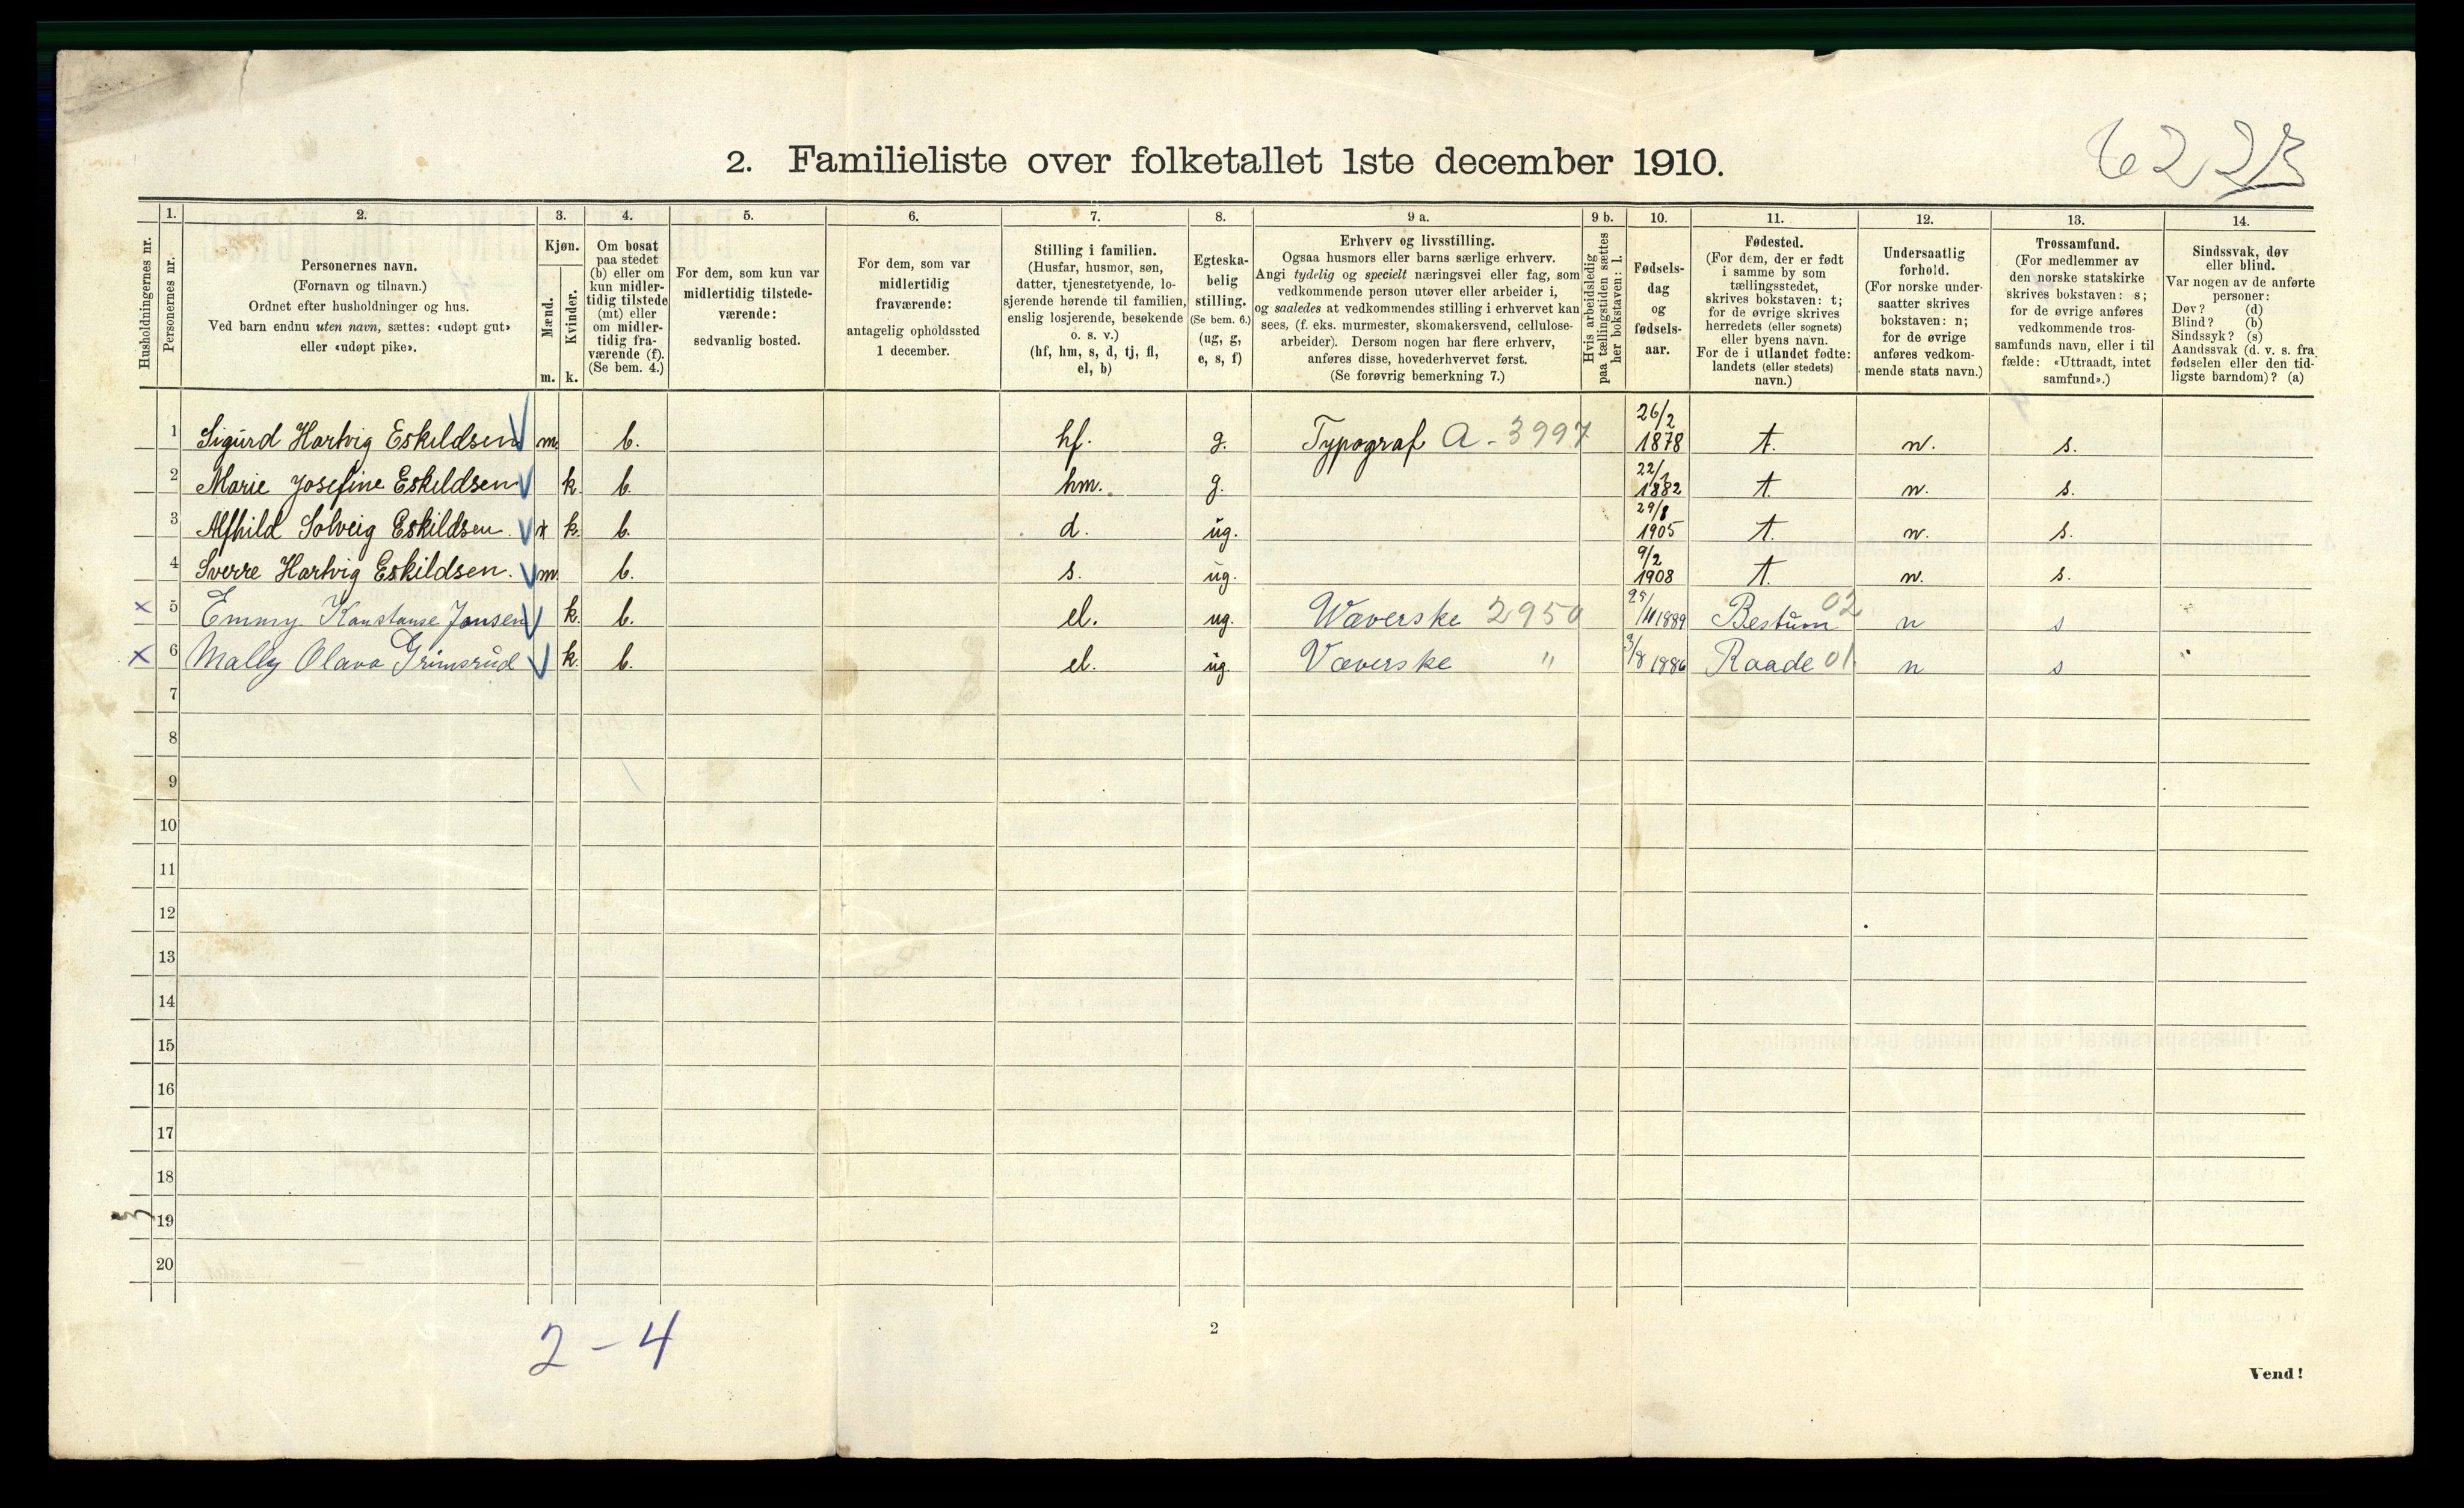 6223
2. Familieliste over folketallet 1ste december 1910.
Husholdningernes nr.
1. Personernes nr.
2. Personernes navn. (Fornavn og tilnavn.) Ordnet efter husholdninger og hus. Ved barn endnu uten navn, sættes: «udøpt gut» eller «udøpt pike».
3. Kjøn. Mænd. m. Kvinder. k.
4. Om bosat paa stedet (b) eller om kun midlertidig tilstede (mt) eller om midlertidig fraværende (f). (Se bem. 4.)
5. For dem, som kun var midlertidig tilstedeværende: sedvanlig bosted.
6. For dem, som var midlertidig fraværende: antagelig opholdssted 1 december.
7. Stilling i familien. (Husfar, husmor, søn, datter, tjenestetyende, losjerende hørende til familien, enslig losjerende, besøkende o. s. v.) (hf, hm, s, d, tj, fl, el, b)
8. Egteskabelig stilling. (Se bem. 6.) (ug, g, e, s, f)
9 a. Erhverv og livsstilling. Ogsaa husmors eller barns særlige erhverv. Angi tydelig og specielt næringsvei eller fag, som vedkommende person utøver eller arbeider i, og saaledes at vedkommendes stilling i erhvervet kan sees, (f. eks. murmester, skomakersvend, cellulosearbeider). Dersom nogen har flere erhverv, anføres disse, hovederhvervet først. (Se forøvrig bemerkning 7.)
9 b. Hvis arbeidsledig paa tællingstiden sættes her bokstaven: l.
10. Fødselsdag og fødselsaar.
11. Fødested. (For dem, der er født i samme by som tællingsstedet, skrives bokstaven: t; for de øvrige skrives herredets (eller sognets) eller byens navn. For de i utlandet fødte: landets (eller stedets) navn.)
12. Undersaatlig forhold. (For norske undersaatter skrives bokstaven: n; for de øvrige anføres vedkommende stats navn.)
13. Trossamfund. (For medlemmer av den norske statskirke skrives bokstaven: s; for de øvrige anføres vedkommende trossamfunds navn, eller i tilfælde: «Uttraadt, intet samfund».)
14. Sindssvak, døv eller blind. Var nogen av de anførte personer: Døv? (d) Blind? (b) Sindssyk? (s) Aandssvak (d. v. s. fra fødselen eller den tidligste barndom)? (a)
1 Sigurd Hartvig Eskildsen m. b. hf. g. Typograf A - 3997 26/2 1878 t. n. s.
2 Marie Josefine Eskildsen k. b. hm. g. 22/1 1882 t. n. s.
3 Alfhild Solveig Eskildsen. k. b. d. ug. 29/8 1905 t. n. s.
4 Sverre Hartvig Eskildsen. m. b. s. ug. 9/2 1908 t. n. s.
x 5 Emmy Konstanse Jansen k. b. el. ug. Væverske 2950 25/11 1889 Bestum 02 n s
x 6 Mally Olava Grimsrud k. b. el. ug. Væverske " 3/8 1886 Raade 01 n s
7
8
9
10
11
12
13
14
15
16
17
18
19
20
2 - 4
2
Vend!